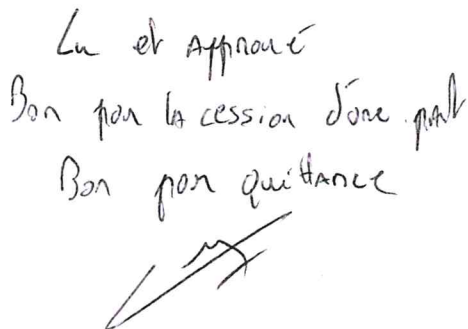 Lu et Approuvé
Bon pour la cession d'une part
Bon pour quittance